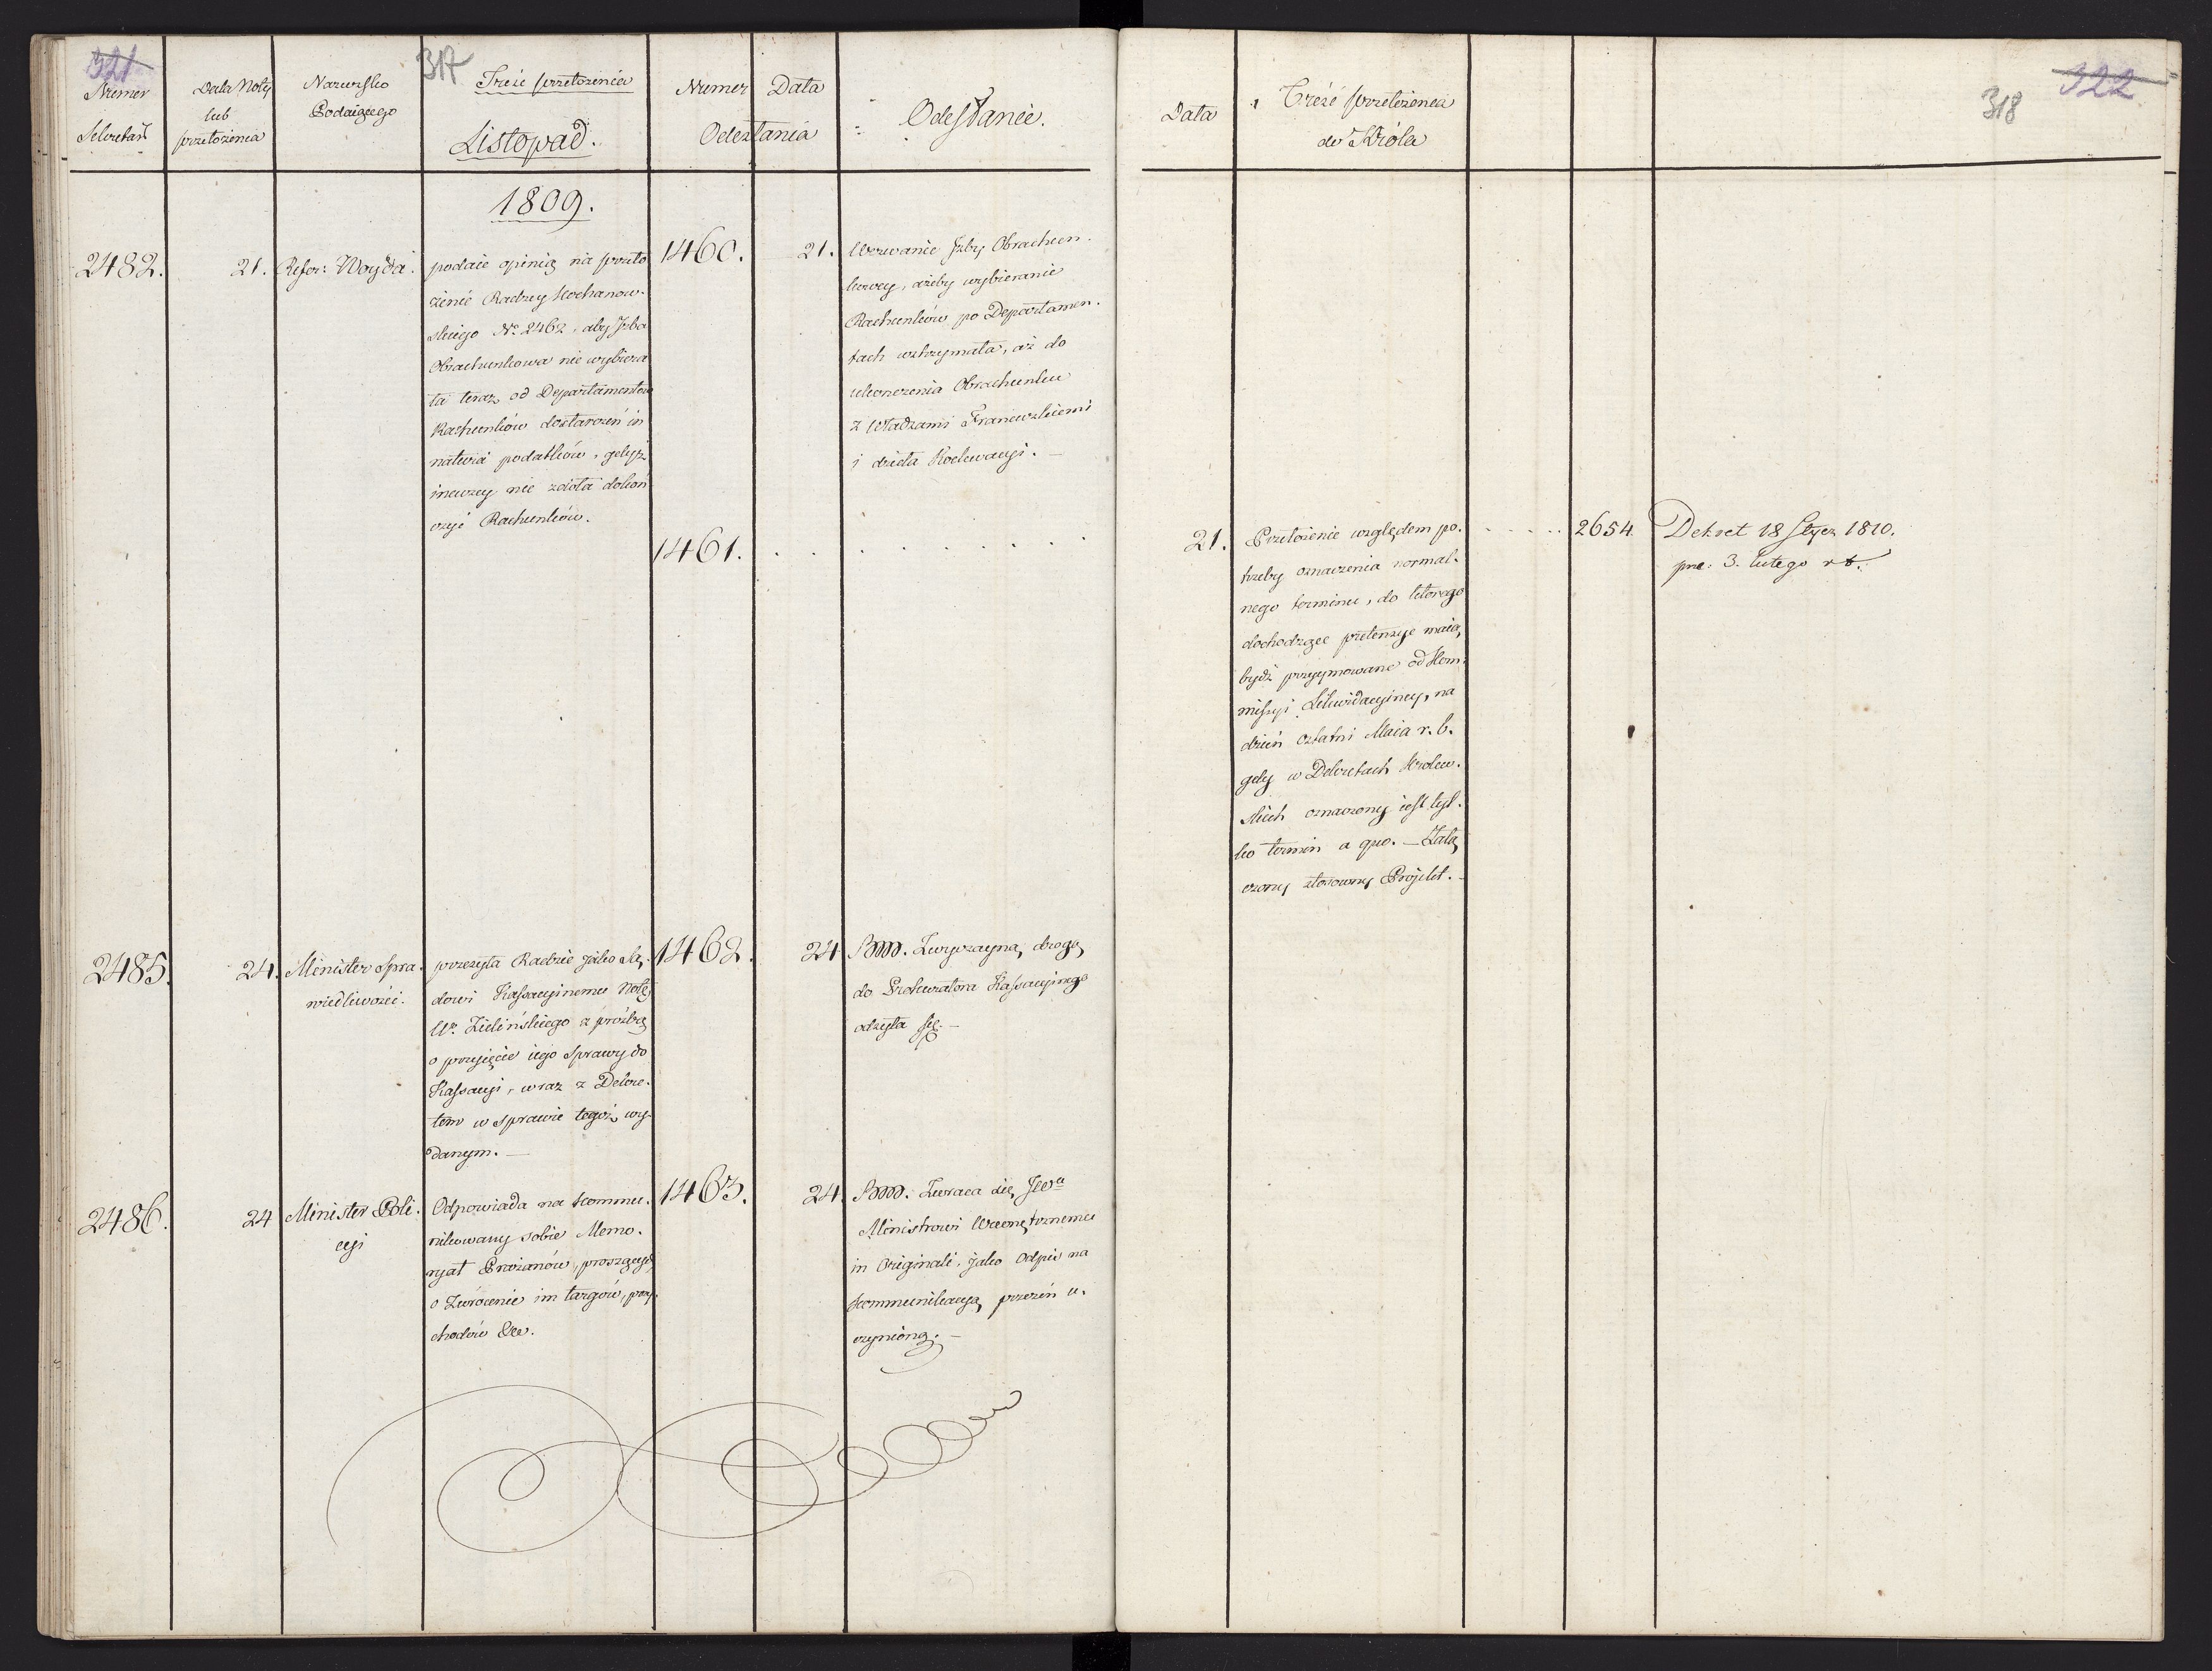 321
317
Numer
Sekretar
Data Noty
lub
przełożenia
Nazwisko
Podaiącego
Treść przełożenia
Listopad.
Numer
Data
Odesłania
Odesłanie.
1809.
2482.
21.
Refer: Woyda.
podaie opinią na przeło
żenie Radzcy Kochanow-
skiego No. 2462, aby Izba
Obrachunkowa nie wybiera
ła teraz od Departamentów
Rachunków dostarczeń in
natura podatków, gdyż
inaczey nie zdoła dokoń
czyć Rachunków.
1460.
21.
Wezwanie Izby Obrachun-
kowey, ażeby wybieranie
Rachunków po Departamen-
tach wstrzymała, aż do
ukonczenia Obrachunku
z Władzami Francuzkiemi
i dzieła
1461.
2485.
24.
Minister Spra-
wiedliwości.
przesyła Radzie jako Są-
dowi Kassacyinemu Notę
Ur. Zielińskiego z prośbą
o przyięcie iego sprawy do
Kassacyi, wraz z Dekre-
tem w sprawie tegoż wy-
danym. —
1462.
24
Bmm. Zwyczayną drogą
do Prokuratora Kassacyinego
odsyła się. —
2486.
24
Minister Poli-
cyi
Odpowiada na kommu-
nikowany sobie Memo-
ryał proszących
o Zwrócenie im targów, przy-
chodów &c.
1463.
24.
Bmm. Zwraca się JWu
Ministrowi Wewnętrznemu
in Originali, jako Odpis na
kommunikacyą przezeń u-
czynioną. —
322
318
Data
Treść przełożenia
do Króla
21.
Przełożenie względem po-
trzeby oznaczenia normal-
nego terminu, do którego
dochodzące pretensye maią
bydź przyymowane od Kom-
missyi Likwidacyiney, na
dzień ostatni Maia r. b.
gdy w Dekretach Królew-
skich oznaczony iest tyl-
ko termin a quo. — Załą
czony stosowny Projekt. —
2654.
Dekret 18 Stycz 1810.
pre. 3. lutego rb.